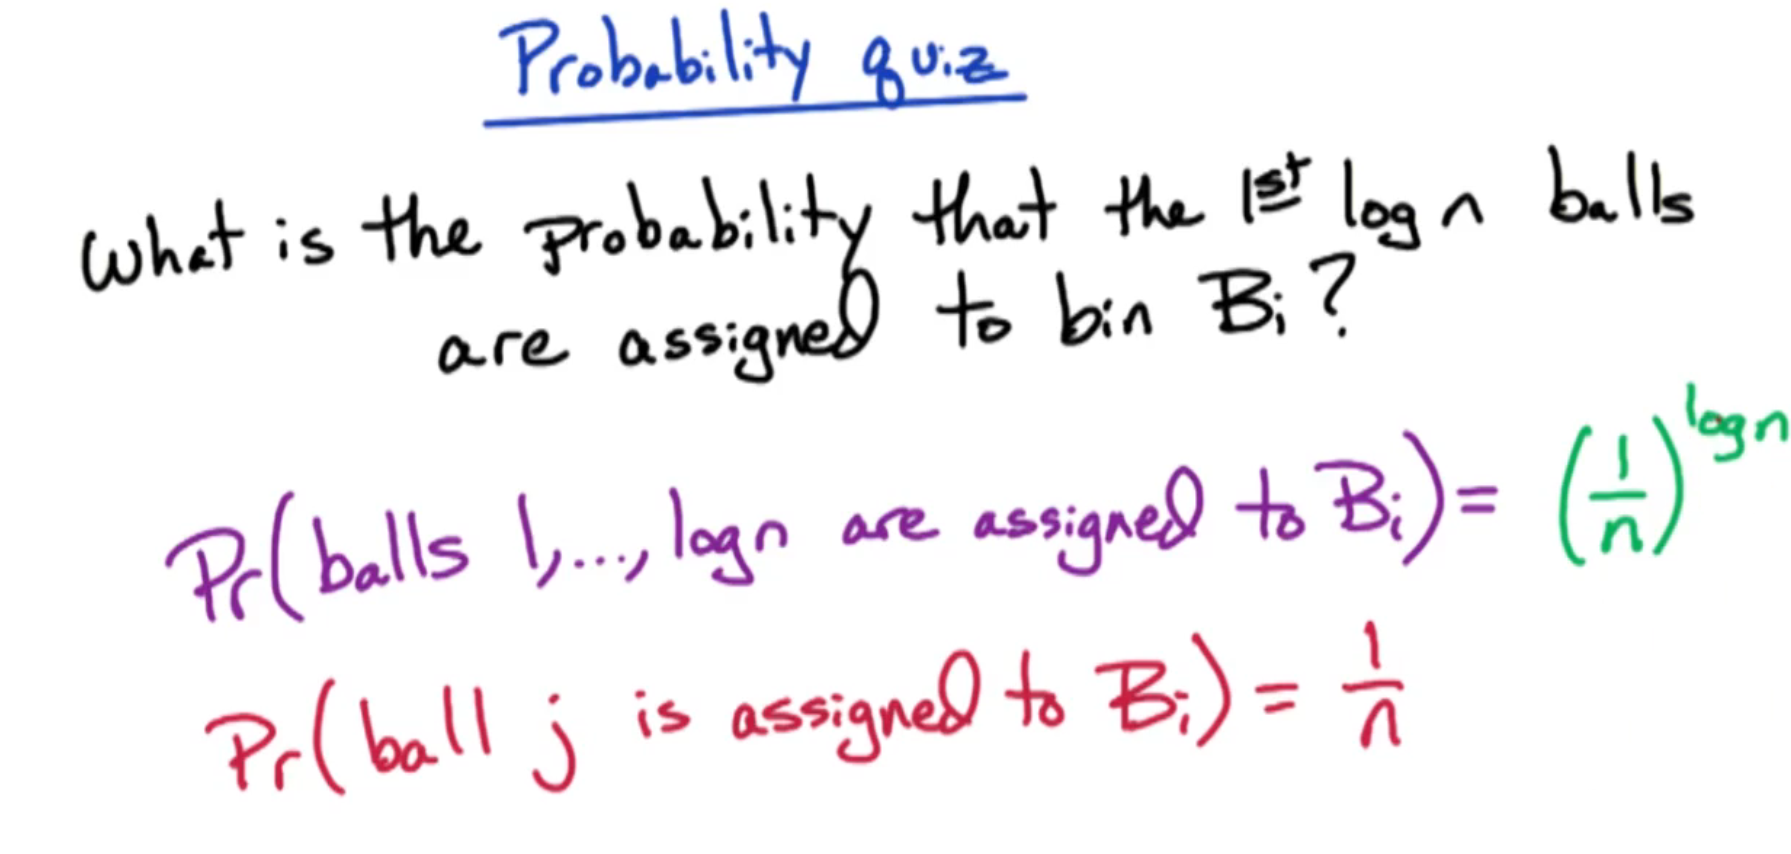 Probability quiz
What is the probability that the 1st log n balls
are assigned to bin Bi?
Pr(balls 1,..., log n are assigned to Bi) = (1/n)^log n
Pr(ball j is assigned to Bi) = 1/n